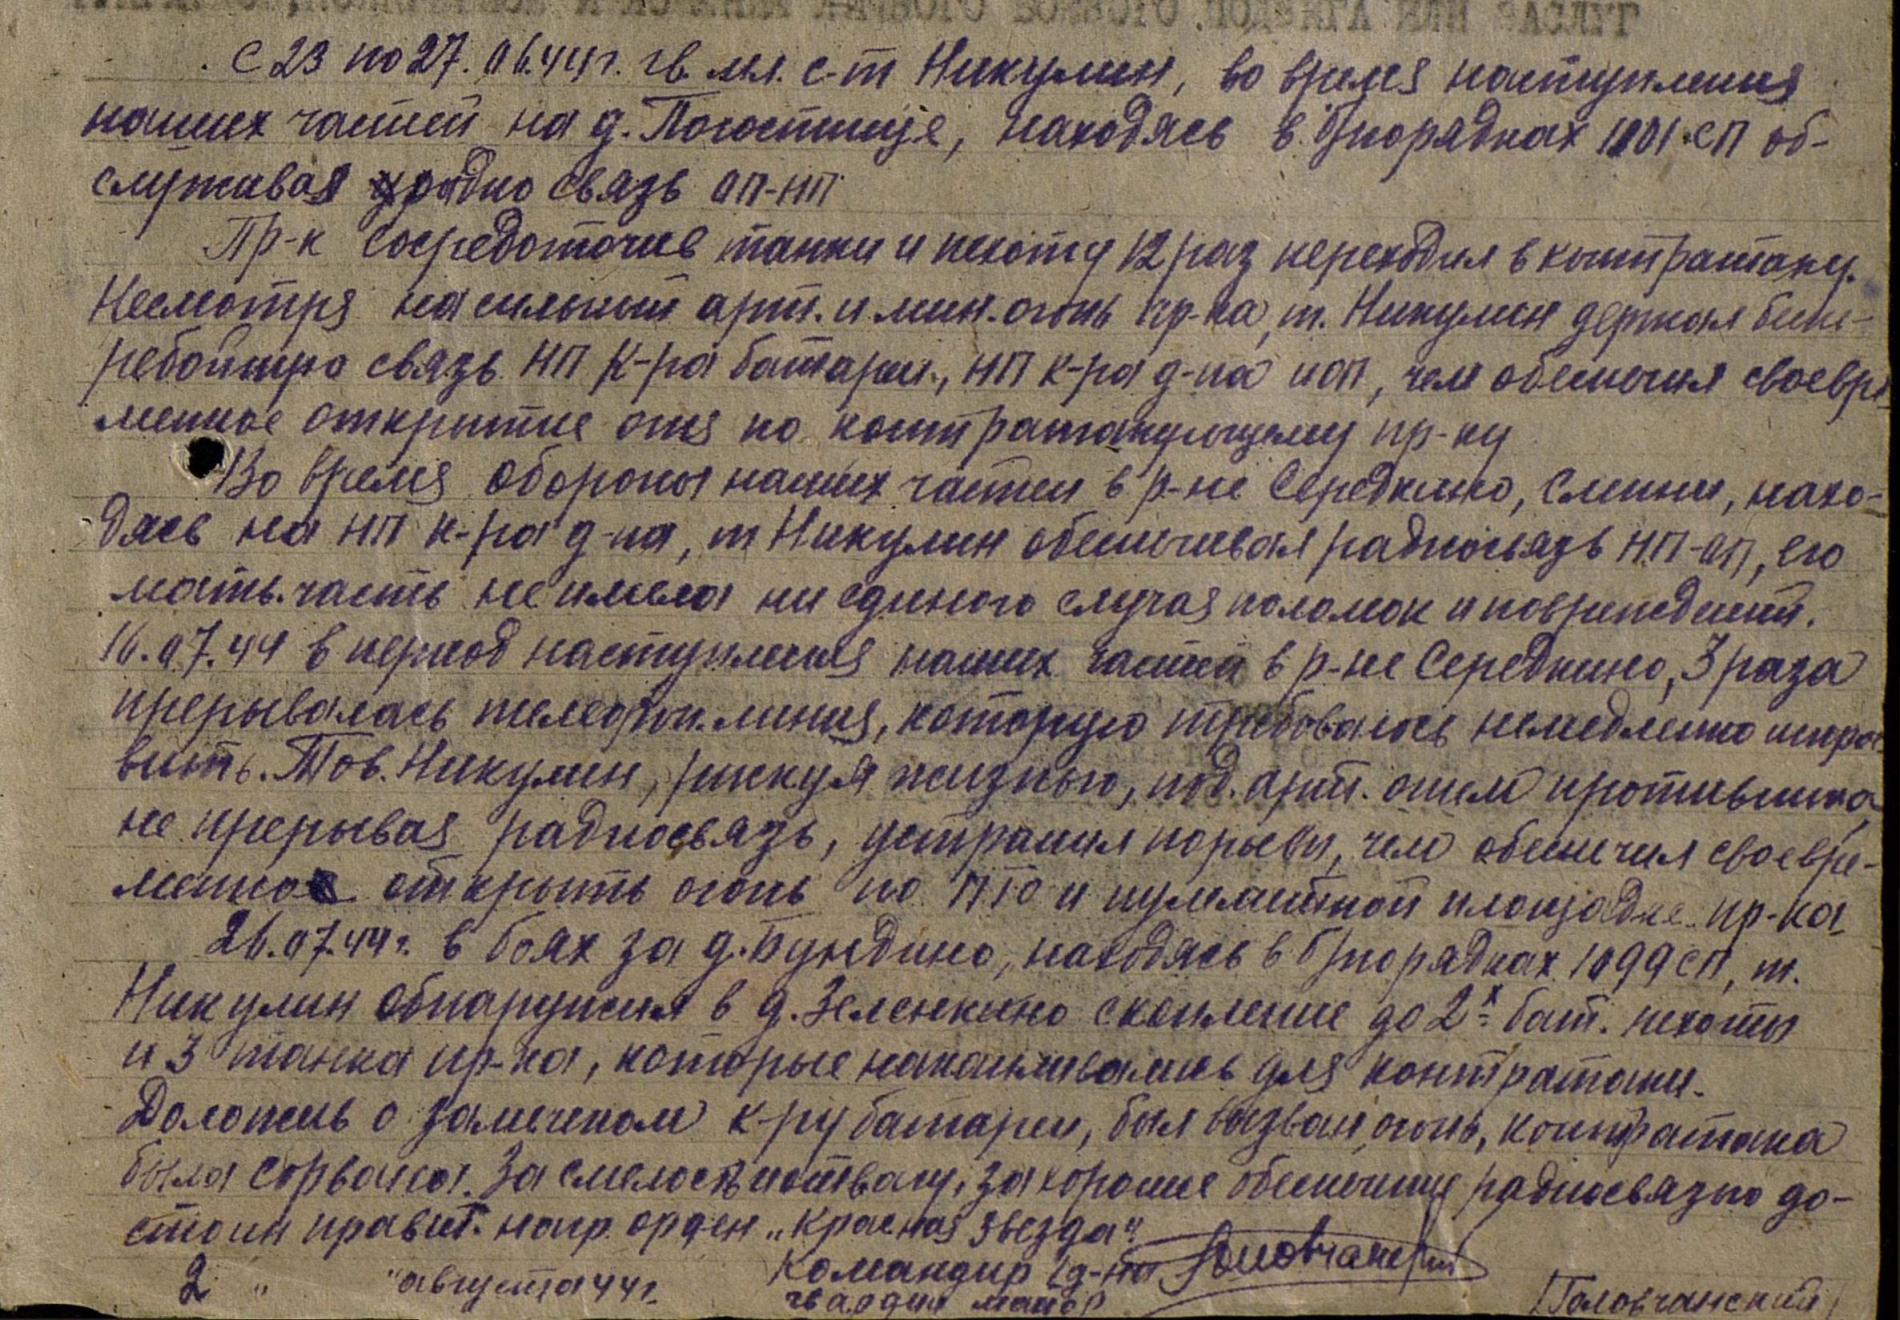 С 23 по 27.06.44г. гв. мл. с-т Никулин, во время наступления
наших частей на д. Погостище, находясь в б/порядках 1101 СП об-
служивая радио связь ОП-НП
Пр-к сосредоточив танки и пехоту 12 раз переходил в контратаку.
Несмотря на сильный арт. и мин. огонь пр-ка, т. Никулин держал беспе-
ребойную связь НП к-ра батареи, НП к-ра д-на и ОП, чем обеспечил своевре
менное открытие огня по контратакующему пр-ку
Во время обороны наших частей в р-не Середкино, нахо-
дясь на НП к-ра д-на, т Никулин обеспечивал радиосвязь НП-ОП, его
мать.часть не имела ни единого случая поломок и повреждений.
16.07.44 в период наступления наших частей в р-не Середкино, 3 раза
прерывалась телефон. линия, которую требовалось немедленно испра
вить. Тов. Никулин, рискуя жизнью, под. арт. огнем противника,
не прерывая радиосвязь, устранил порывы, чем обеспечил своевре-
менно открыть огонь по ПТО и пулеметной площадке пр-ка
26.07.44г. в боях за д. Бундино, находясь в б/порядках 1099 СП, т.
Никулин обнаружил в д. Зеленкино скопление до 2х бат. пехоты
и 3 танка пр-ка, которые накапливались для контратаки.
Доложив о замеченом к-ру батареи, был вызван огонь, контратака
была сорвана. За смелость и отвагу, за хорошее обеспечение радиосвязью до-
стоин правит. нагр. орден „Красная звезда"
2 " "августа 44г. Командир 1 д-на
гвардии майор /Головчанский/